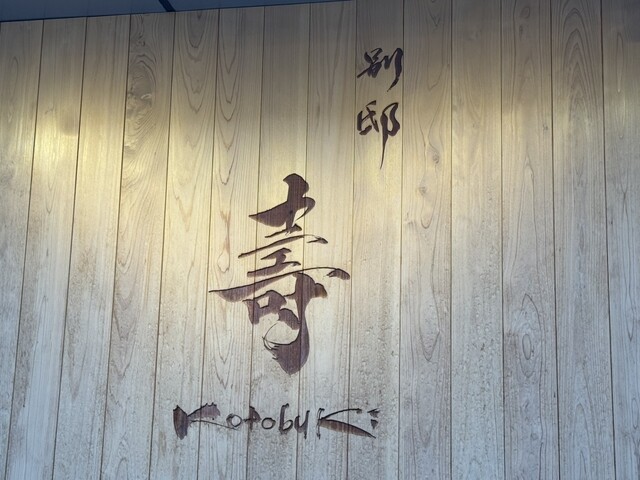 別邸
壽
Kotobuki